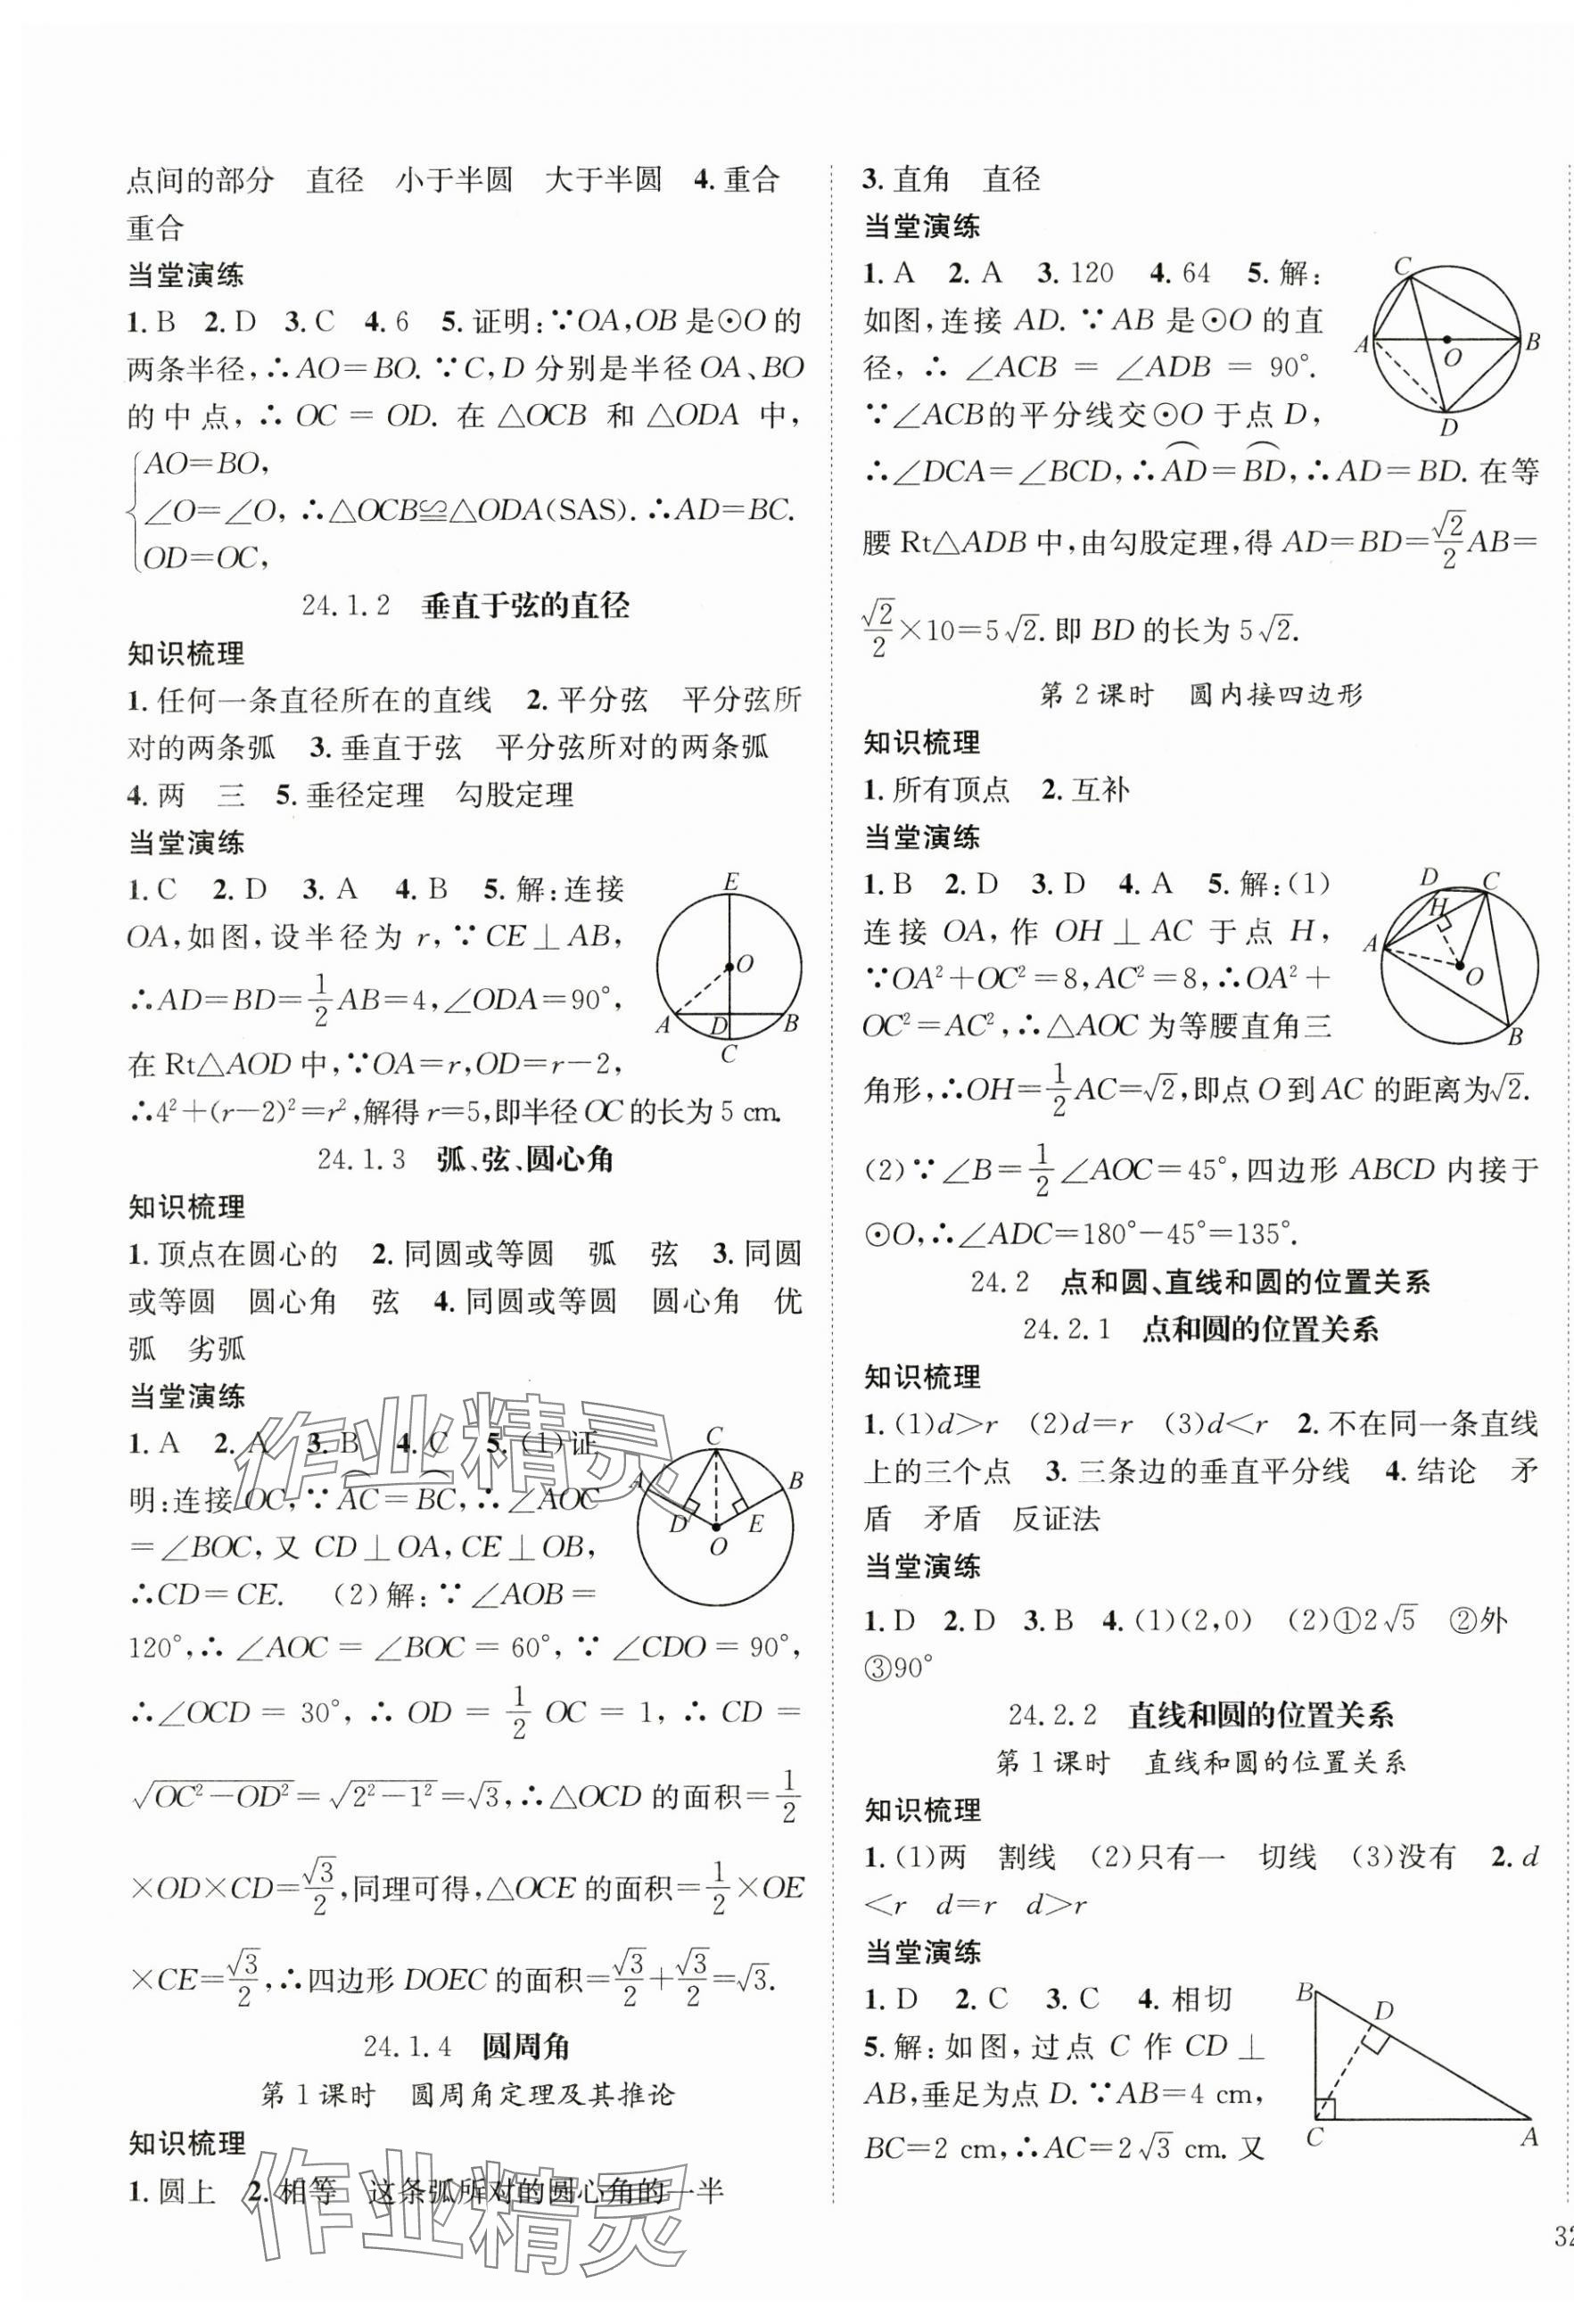 点间的部分　直径　小于半圆　大于半圆　4.重合
重合
当堂演练
1.B　2.D　3.C　4.6　5.证明:∵OA,OB是⊙O的
两条半径,∴AO=BO.∵C,D分别是半径OA、BO
的中点,∴OC=OD.在△OCB和△ODA中,
AO=BO,
∠O=∠O,∴△OCB≌△ODA(SAS).∴AD=BC.
OD=OC,
24.1.2　垂直于弦的直径
知识梳理
1.任何一条直径所在的直线　2.平分弦　平分弦所
对的两条弧　3.垂直于弦　平分弦所对的两条弧
4.两　三　5.垂径定理　勾股定理
当堂演练
1.C　2.D　3.A　4.B　5.解:连接
OA,如图,设半径为r,∵CE⊥AB,
∴AD=BD=1/2AB=4,∠ODA=90°,
在Rt△AOD中,∵OA=r,OD=r-2,
∴4²+(r-2)²=r²,解得r=5,即半径OC的长为5 cm.
E
O
A D B
C
24.1.3　弧、弦、圆心角
知识梳理
1.顶点在圆心的　2.同圆或等圆　弧　弦　3.同圆
或等圆　圆心角　弦　4.同圆或等圆　圆心角　优
弧　劣弧
当堂演练
1.A　2.A　3.B　4.C　5.(1)证
明:连接OC,∵⌒AC=⌒BC,∴∠AOC
=∠BOC,又CD⊥OA,CE⊥OB,
∴CD=CE.　(2)解:∵∠AOB=
120°,∴∠AOC=∠BOC=60°,∵∠CDO=90°,
∴∠OCD=30°,∴OD=1/2OC=1,∴CD=
√(OC²-OD²)=√(2²-1²)=√3,∴△OCD的面积=1/2
×OD×CD=√3/2,同理可得,△OCE的面积=1/2×OE
×CE=√3/2,∴四边形DOEC的面积=√3/2+√3/2=√3.
C
A B
D E
O
作业精灵
24.1.4　圆周角
第1课时　圆周角定理及其推论
知识梳理
1.圆上　2.相等　这条弧所对的圆心角的一半
作业精灵
3.直角　直径
当堂演练
1.A　2.A　3.120　4.64　5.解:
如图,连接AD.∵AB是⊙O的直
径,∴∠ACB=∠ADB=90°.
∵∠ACB的平分线交⊙O于点D,
∴∠DCA=∠BCD,∴⌒AD=⌒BD,∴AD=BD.在等
腰Rt△ADB中,由勾股定理,得AD=BD=√2/2AB=
√2/2×10=5√2.即BD的长为5√2.
C
A O B
D
第2课时　圆内接四边形
知识梳理
1.所有顶点　2.互补
当堂演练
1.B　2.D　3.D　4.A　5.解:(1)
连接OA,作OH⊥AC于点H,
∵OA²+OC²=8,AC²=8,∴OA²+
OC²=AC²,∴△AOC为等腰直角三
角形,∴OH=1/2AC=√2,即点O到AC的距离为√2.
(2)∵∠B=1/2∠AOC=45°,四边形ABCD内接于
⊙O,∴∠ADC=180°-45°=135°.
D C
H
A
O
B
24.2　点和圆、直线和圆的位置关系
24.2.1　点和圆的位置关系
知识梳理
1.(1)d>r　(2)d=r　(3)d<r　2.不在同一条直线
上的三个点　3.三条边的垂直平分线　4.结论　矛
盾　矛盾　反证法
当堂演练
1.D　2.D　3.B　4.(1)(2,0)　(2)①2√5　②外
③90°
24.2.2　直线和圆的位置关系
第1课时　直线和圆的位置关系
知识梳理
1.(1)两　割线　(2)只有一　切线　(3)没有　2.d
<r　d=r　d>r
当堂演练
1.D　2.C　3.C　4.相切
5.解:如图,过点C作CD⊥
AB,垂足为点D.∵AB=4 cm,
BC=2 cm,∴AC=2√3 cm.又
B
D
C A
32